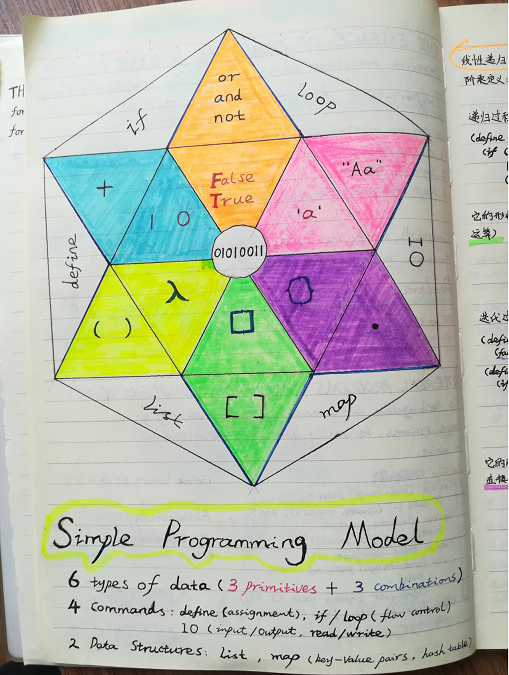 TH
for
for
or
and
not
if
Loop
+
1 0
False
True
'a'
"Aa"
01010011
define
IO
( )
λ
□
{}
•
[ ]
List
map
Simple Programming Model
6 types of data (3 primitives + 3 combinations)
4 Commands: define (assignment), if / loop (flow control)
IO (input/output, read/write)
2 Data Structures: List, map (key-value pairs, hash table)
线性递归
阶乘定义:
递归过程
(define
(if (
它的形
运算)
迭代过
(defin
(fa
(defin
(i
它的